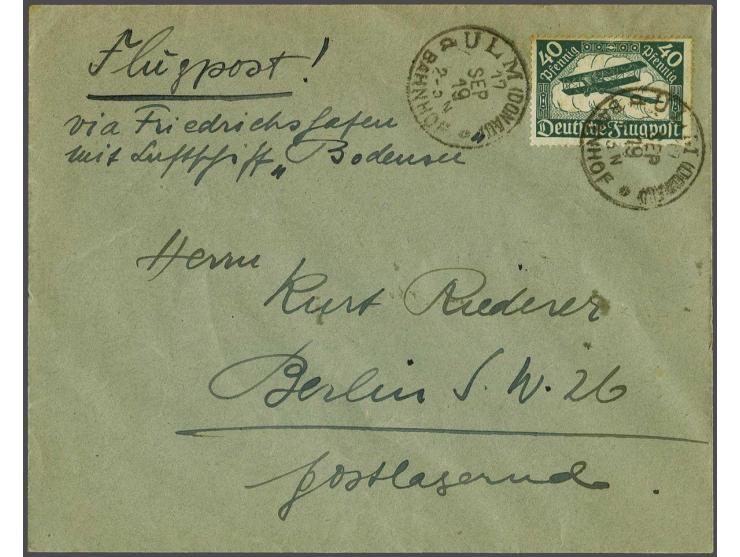 Flugpost!
via Friedrichshafen
mit Luftschiff „Bodensee"
40 40
Pfennig Pfennig
Deutsche Flugpost
ULM (DONAU)
17
SEP
19
2-3 N
BAHNHOF
ULM (DONAU)
SEP
19
3 N
BAHNHOF
Herrn
Kurt Riederer
Berlin S.W. 26
postlagernd.